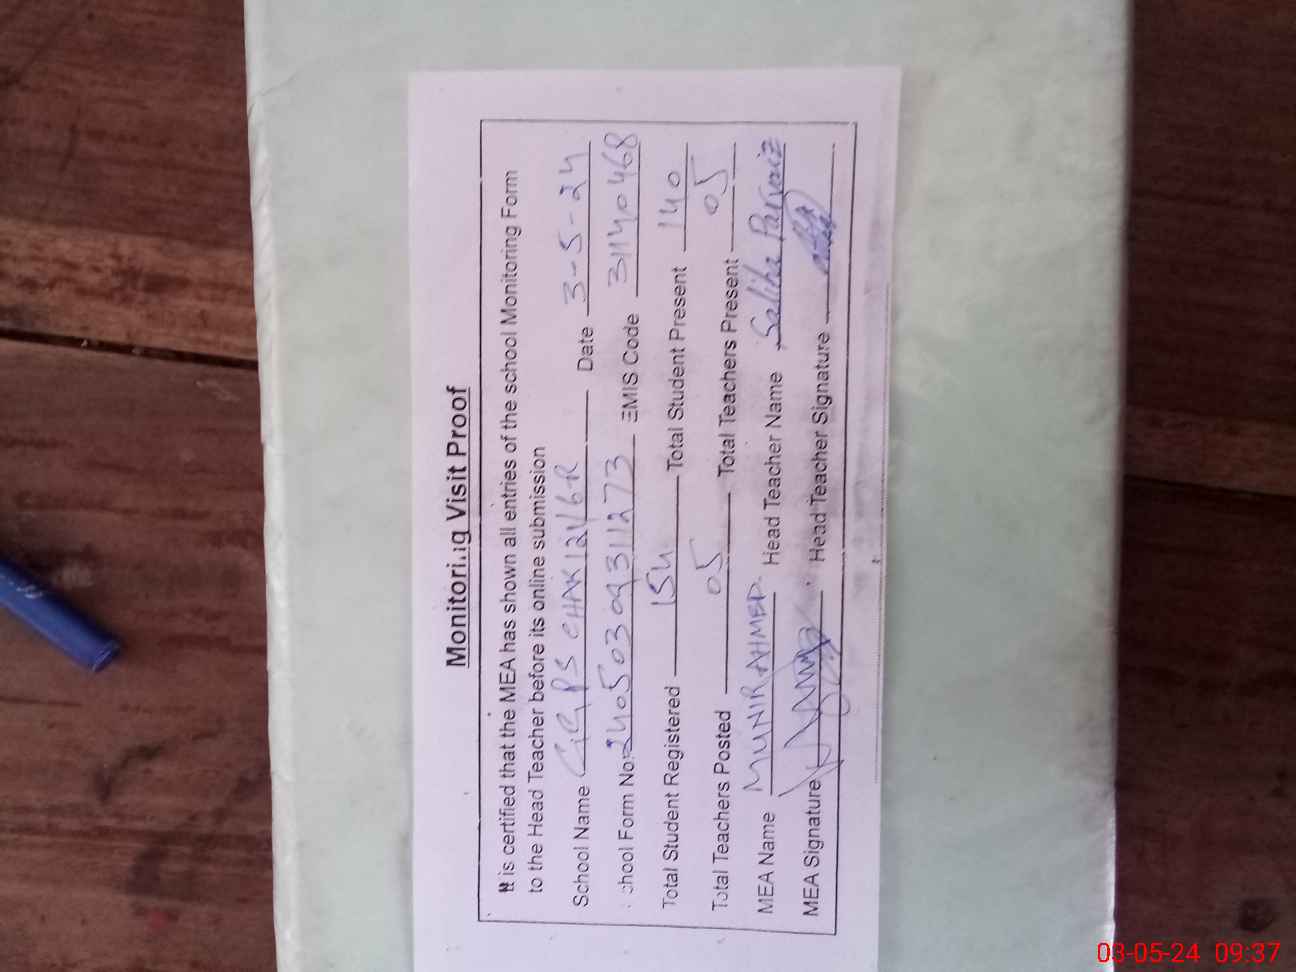 Monitoring Visit Proof
It is certified that the MEA has shown all entries of the school Monitoring Form
to the Head Teacher before its online submission
School Name GGPS CHAK 124/6R Date 3-5-24
chool Form No: 24050309311273 EMIS Code 31140468
Total Student Registered 154 Total Student Present 140
Total Teachers Posted 05 Total Teachers Present 05
MEA Name MUNIR AHMED Head Teacher Name Saliha Parvaiz
MEA Signature Head Teacher Signature
03-05-24 09:37